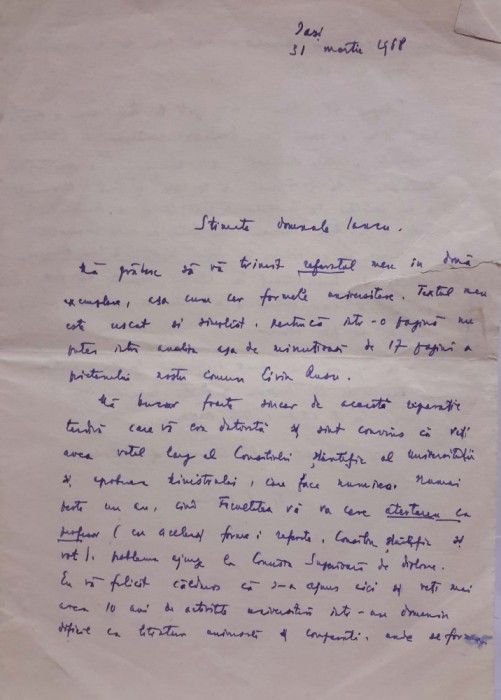 Iași
31 martie 1968
Stimate domnule Iancu.
Mă grăbesc să vă trimit referatul meu în două
exemplare, așa cum cer formele universitare. Textul meu
este uscat și simplist, pentrucă într-o pagină nu
puteam intra analiza așa de minuțioasă de 17 pagini a
prietenului nostru comun Liviu Rusu.
Mă bucur foarte sincer de această reparație
tardivă care vă era datorită și sunt convins că veți
avea votul larg al Consiliului științific al universității
și aprobarea Ministrului, care face numirea. Numai
peste un an, când Facultatea vă va cere atestarea ca
profesor (cu aceleași forme: reporte, Consiliu științific și
vot), problema ajunge la Comisia Superioară de diplome.
Eu vă felicit călduros că s-a ajuns aici și veți mai
avea 10 ani de activitate universitară într-un domeniu
dificil ca literatura universală și comparată, unde se